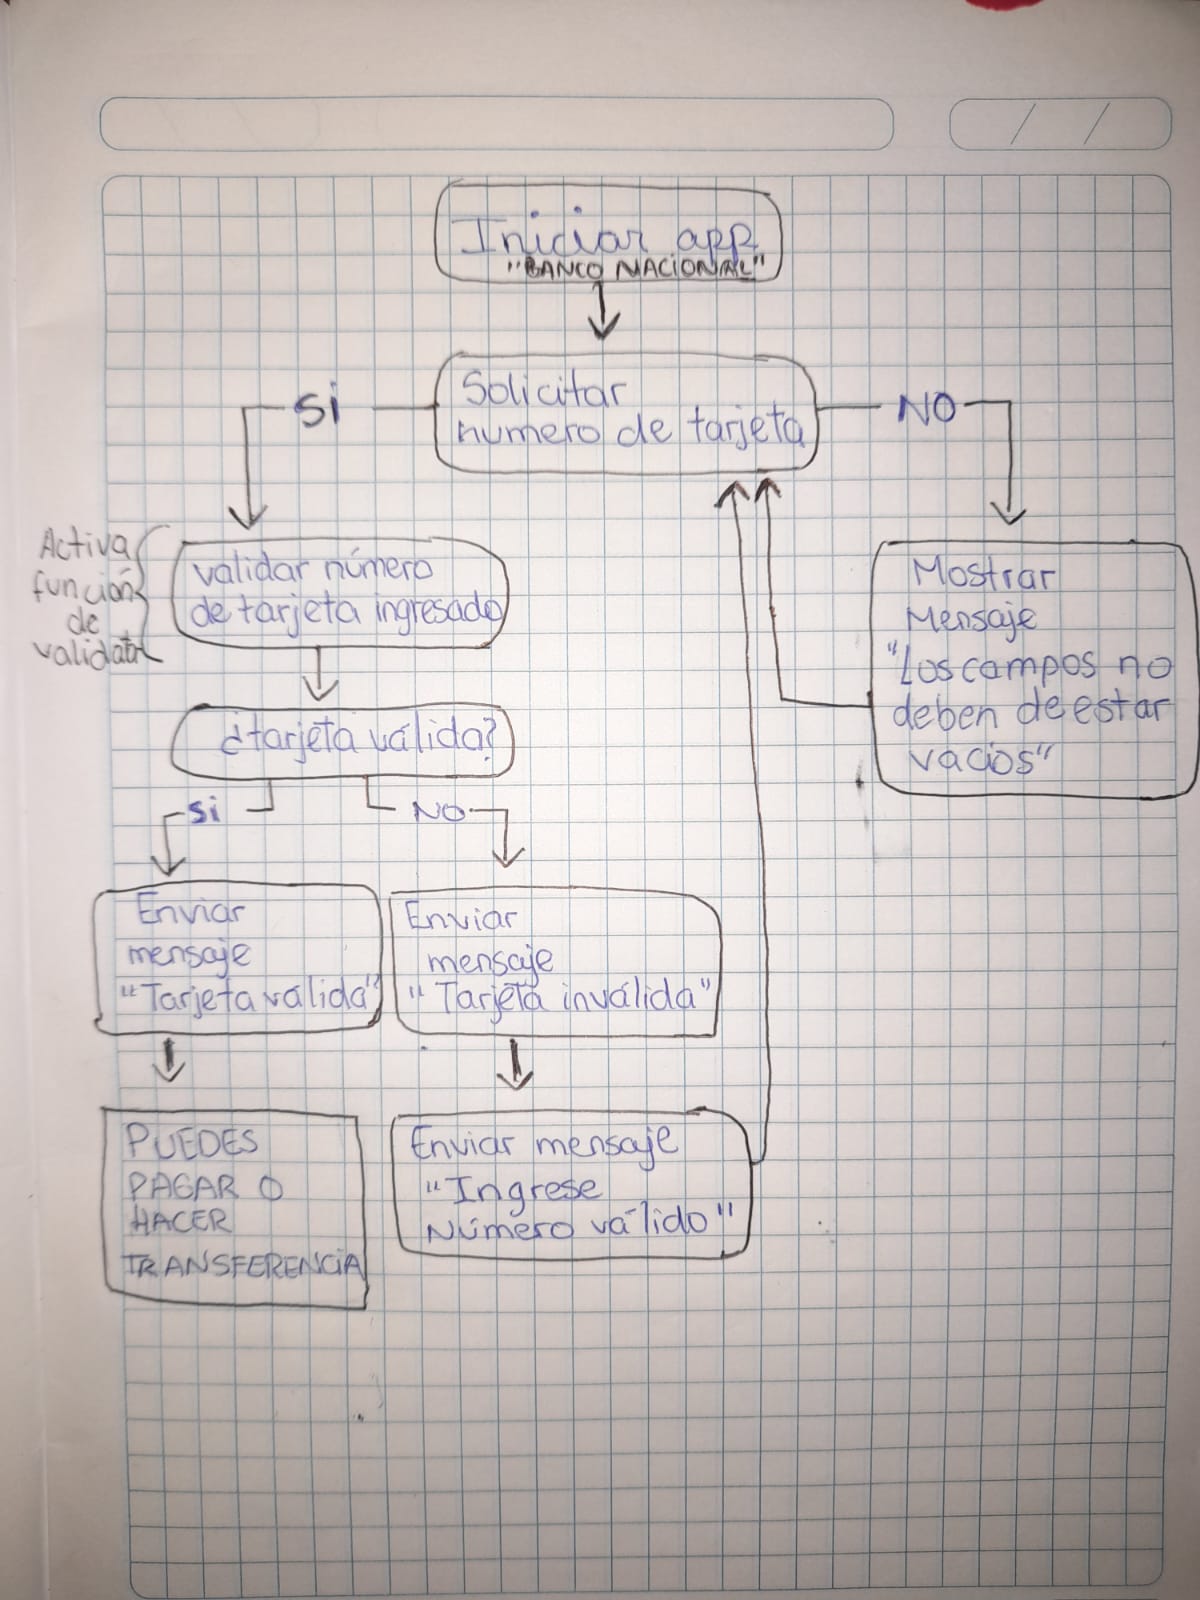 Iniciar app
"BANCO NACIONAL"
Solicitar
numero de tarjeta
Si
NO
Activa
función
de
validator
validar número
de tarjeta ingresado
Mostrar
Mensaje
"Los campos no
deben de estar
vacios"
¿tarjeta válida?
Si
NO
Enviar
mensaje
"Tarjeta válida"
Enviar
mensaje
"Tarjeta inválida"
PUEDES
PAGAR O
HACER
TRANSFERENCIA
Enviar mensaje
"Ingrese
Número válido"